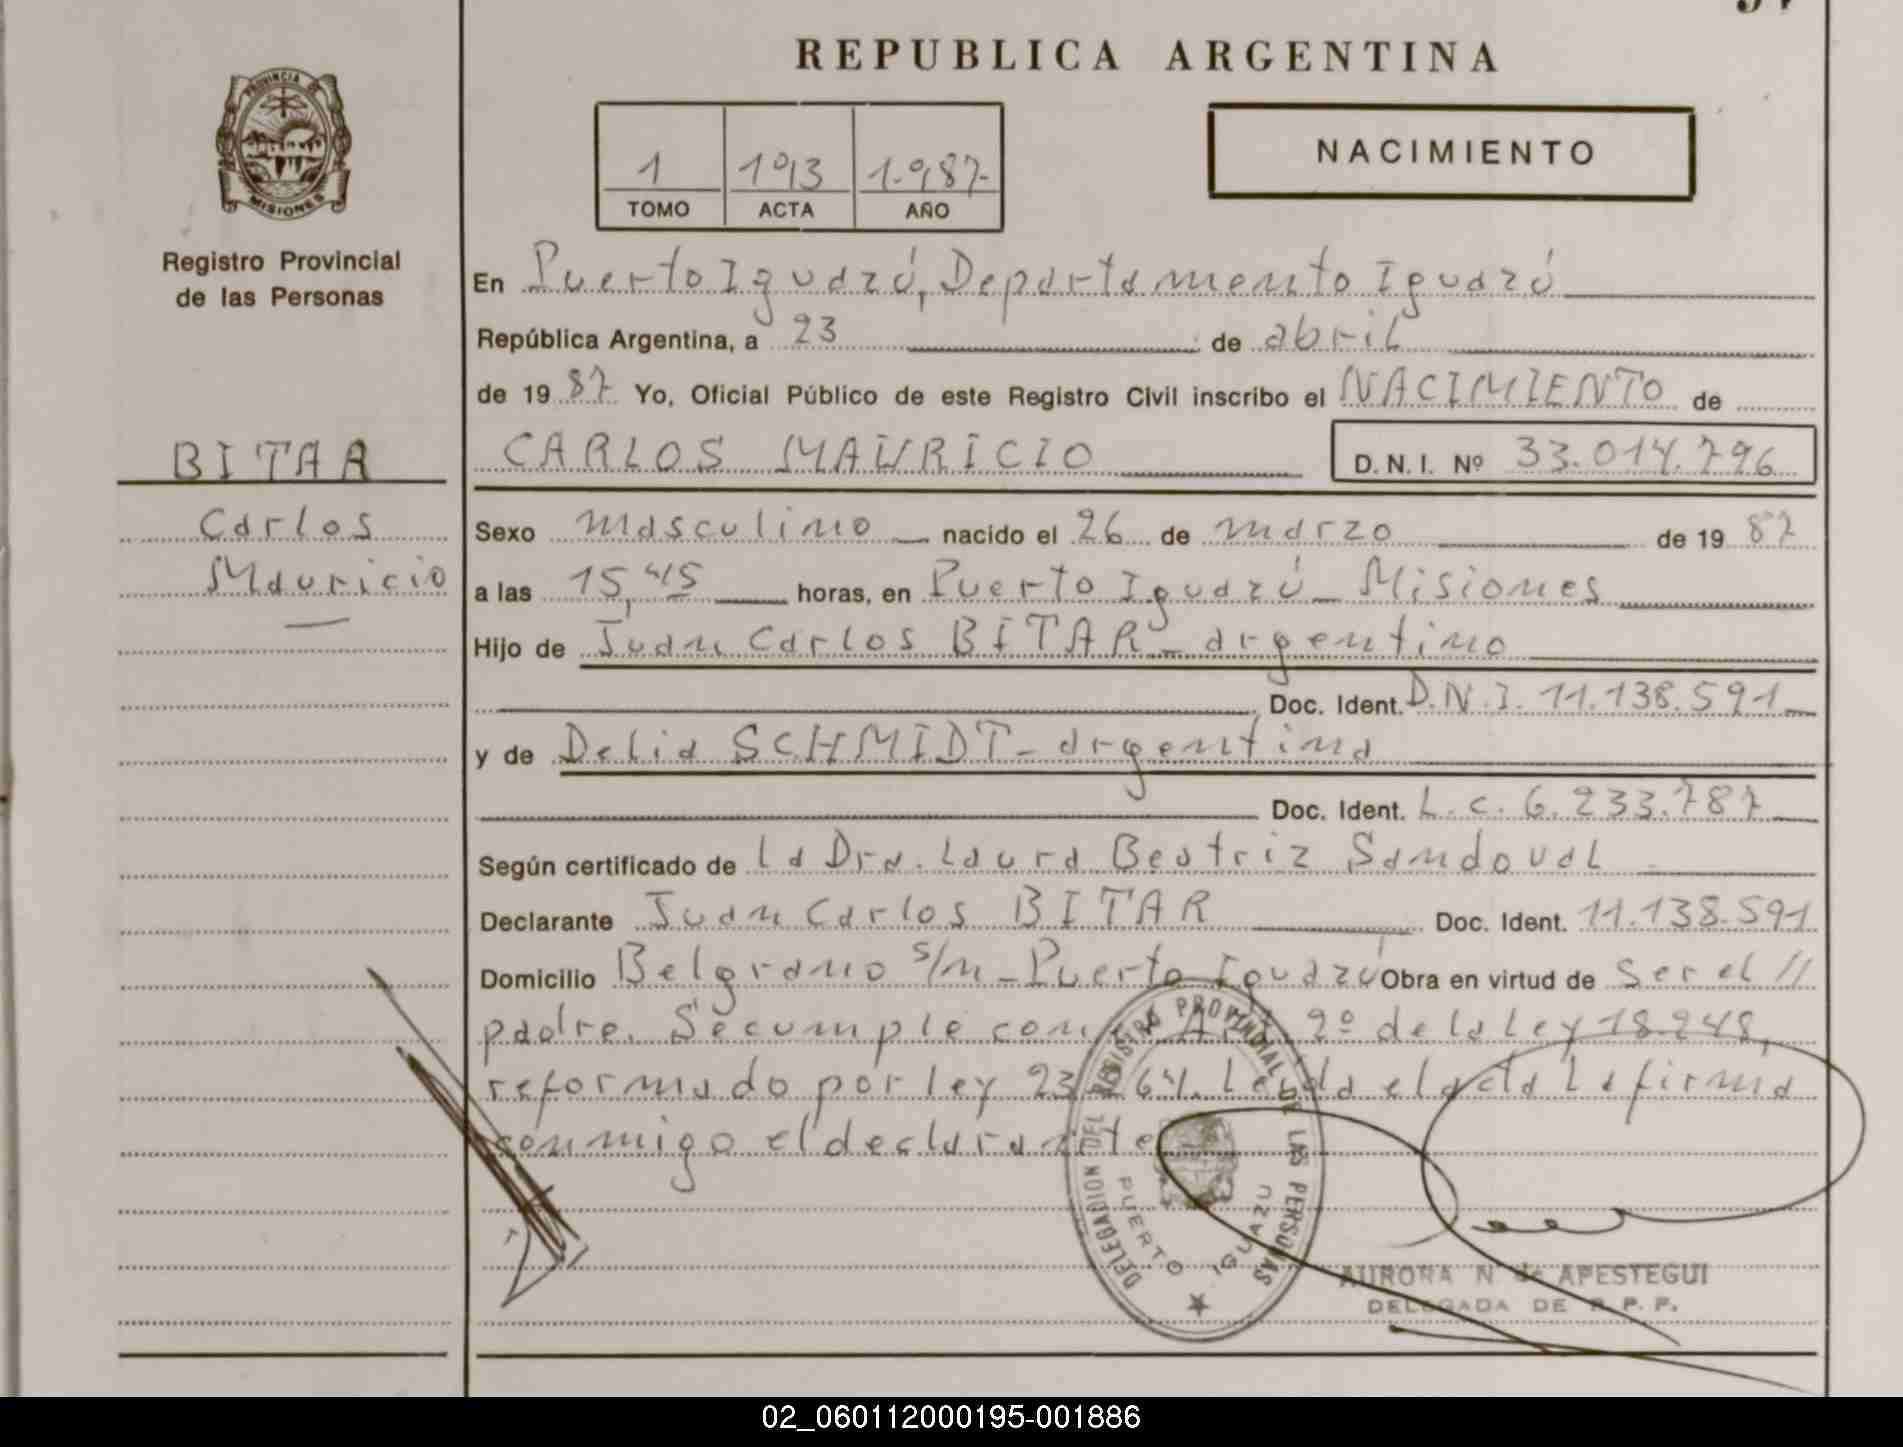 REPUBLICA ARGENTINA
PROVINCIA DE
MISIONES
Registro Provincial
de las Personas
1 193 1.987-
TOMO ACTA AÑO
NACIMIENTO
En Puerto Iguazú, Departamento Iguazú
República Argentina, a 23 de abril
de 19 87 Yo, Oficial Público de este Registro Civil inscribo el NACIMIENTO de
BITAR
CARLOS MAURICIO D.N.I. Nº 33.014.796
Carlos
Mauricio
Sexo masculino nacido el 26 de marzo de 19 87
a las 15,45 horas, en Puerto Iguazú - Misiones
Hijo de Juan Carlos BITAR - argentino
Doc. Ident. D.N.I. 11.138.591
y de Delia SCHMIDT - argentina
Doc. Ident. L.C. 6.233.787
Según certificado de la Dra. Laura Beatriz Sandoval
Declarante Juan Carlos BITAR Doc. Ident. 11.138.591
Domicilio Belgrano s/n - Puerto Iguazú Obra en virtud de ser el //
padre. Se cumple con Art 2º de la Ley 18.248,
reformado por ley 23 Leída el acta la firma
conmigo el declarante
DELEGACION DEL REGISTRO PROVINCIAL DE LAS PERSONAS
PUERTO IGUAZU
AURORA N. de APESTEGUI
DELEGADA DE R.P.P.
02_060112000195-001886